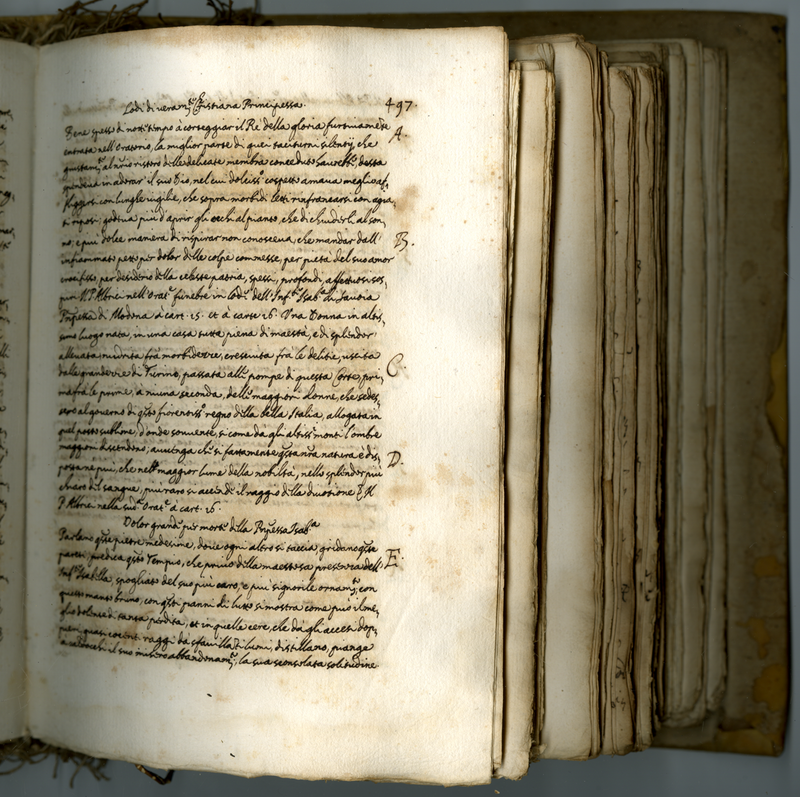 Lodi di veram.te Christiana Principessa. 497.
Bene spesso di nott: tempo à corteggiar il Re della gloria furtivamẽte A.
entrata nell'Oratorio, la miglior parte di quei taciturni silentij, che
giustam.te al n̄rio ristoro delle delicate membra conceduto haurebbe, desta
spendeva in adorar' il suo Dio, nel cui dolciss.o cospetto amava meglio af,
fliggersi con lunghe vigilie, che sopra morbidi letti rinfrancarsi con agia,
ti riposi; godeva più d'aprir gli occhi al pianto, che di chiuderli al son,
no; e piu dolce maniera di rispirar non conosceva, che mandar dall' B.
infiammato petto per dolor delle colpe commesse, per pietà del suo amor
crocifisso, per desiderio della celeste patria, spessi, profondi, affettuosi sos,
piri. Il P. Albrici nell'Orat.e funebre in lode dell' Inf.ta Isab.a di Savoia
Prn̄pessa di Modena à cart. 15. et à carte 16. Una Donna in altis,
simo luogo nata, in una casa tutta piena di maestà, e di splendor
allevata, nudrita frà morbidezze, cresciuta frà le delitie, uscita
dalle grandezze di Turino, passata alle pompe di questa Corte, pri, C.
ma frà le prime, à niuna seconda, delle maggiori donne, che sedes,
sero al governo di q̄sto fiorentiss.o regno della bella Italia, allogata in
quel posto sublime, d'onde sovvente, si come da gli altiss.i monti l'ombre
maggiori discendono; avvenga che si fattamente q̄sta n̄ra natura è dis, D.
posta, nè piu, che nel maggior lume della nobiltà, nello splendor più
chiaro del sangue, più raro si accende il raggio della divotione. Il
P. Albrici nella sud.a Orat.e à cart. 16.
Dolor grande per morte della Prn̄pessa Isab.a
Parlano q̄ste pietre medesime, dove ogni altro si taccia, gridano q̄ste E.
pareti, predica q̄sto Tempio, che privo della maestosa presenza dell'
Inf.ta Isabella, spogliato del suo più caro, e più signorile ornam.to, con
questo manto bruno, con q̄sti panni di lutto si mostra come può il me,
glio dolente di tanta perdita, et in quelle cere, che dà gli accesi dop,
pieri, quasi cocenti raggi da sfavillanti lumi, distillano, piange
a caldi occhi il suo misero abbandonam.to, la sua sconsolata solitudine